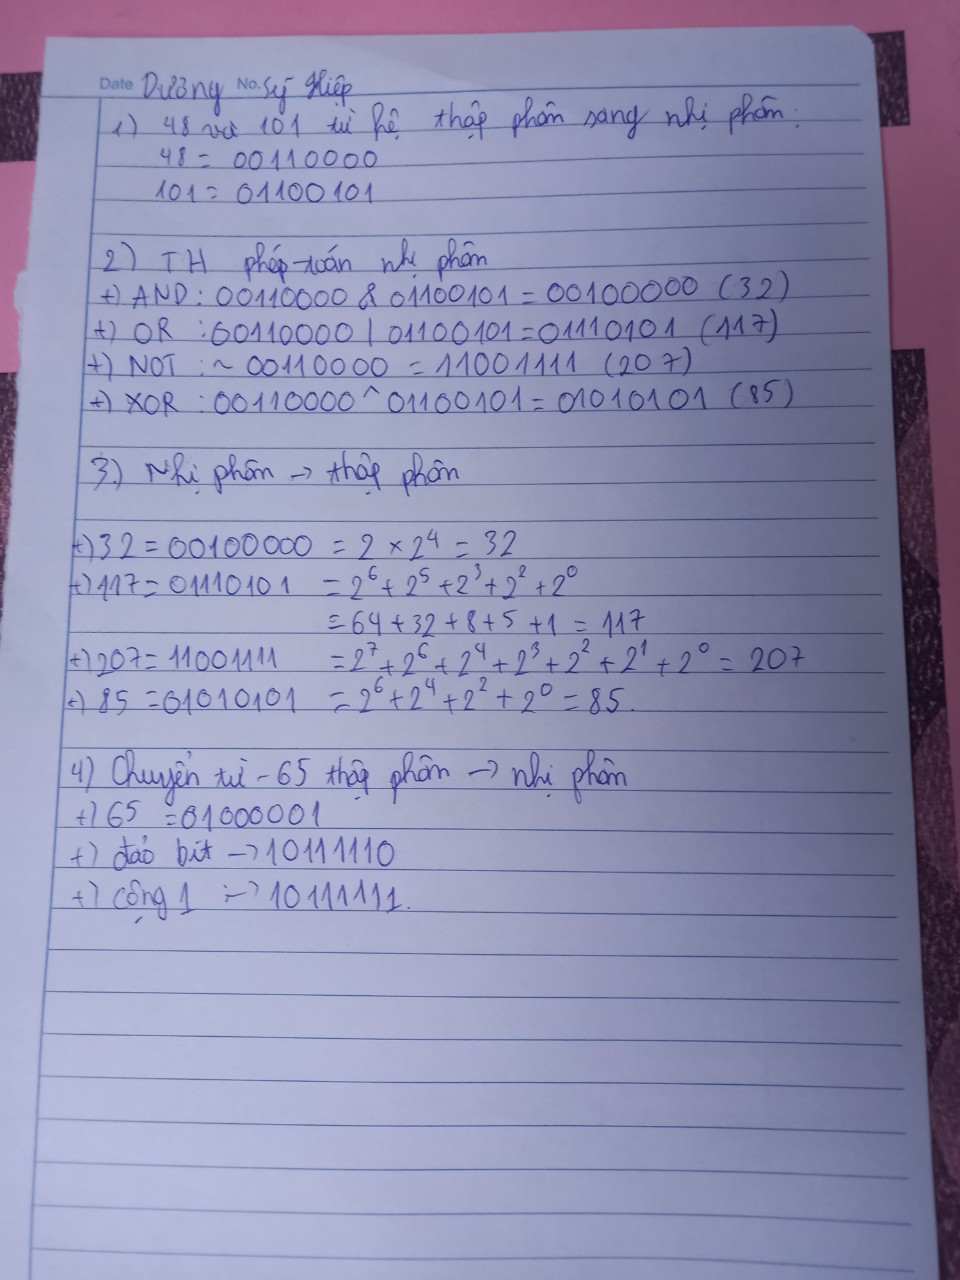 Date Dương No. Sỹ Hiệp
1) 48 và 101 từ hệ thập phân sang nhị phân:
48 = 00110000
101 = 01100101
2) TH phép toán nhị phân
+) AND : 00110000 & 01100101 = 00100000 (32)
+) OR : 00110000 | 01100101 = 01110101 (117)
+) NOT : ~ 00110000 = 11001111 (207)
+) XOR : 00110000 ^ 01100101 = 01010101 (85)
3.) Nhị phân → thập phân
+) 32 = 00100000 = 2 × 2⁴ = 32
+) 117 = 01110101 = 2⁶ + 2⁵ + 2³ + 2² + 2⁰
= 64 + 32 + 8 + 5 + 1 = 117
+) 207 = 11001111 = 2⁷ + 2⁶ + 2⁴ + 2³ + 2² + 2¹ + 2⁰ = 207
+) 85 = 01010101 = 2⁶ + 2⁴ + 2² + 2⁰ = 85.
4) Chuyển từ -65 thập phân → nhị phân
+) 65 = 01000001
+) đảo bit → 10111110
+) cộng 1 :→ 10111111.